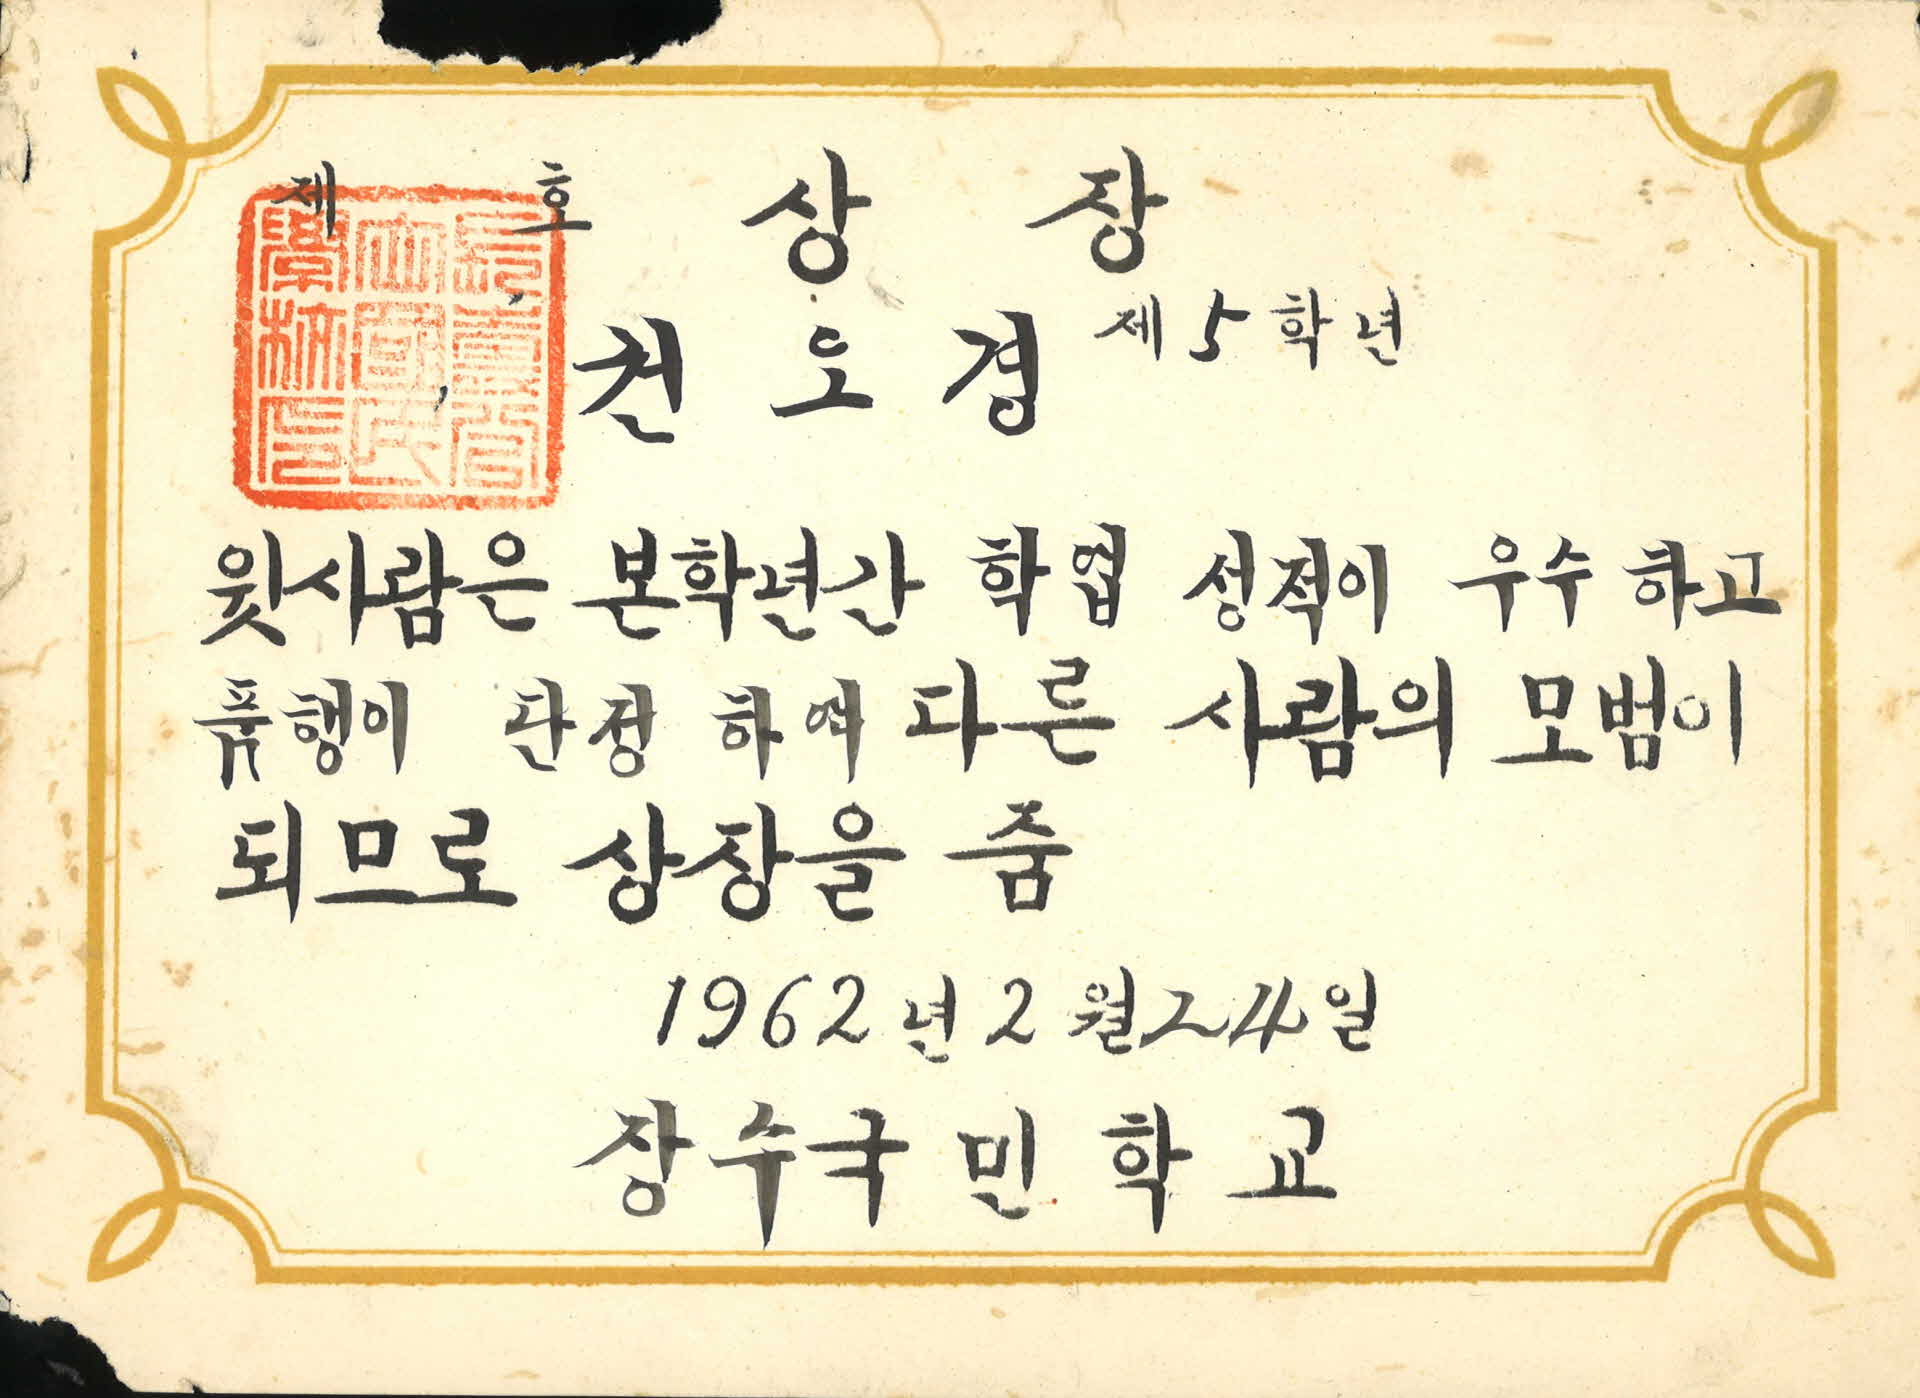 제 호 상 장
제5학년
권 오 경
윗사람은 본학년간 학업 성적이 우수 하고
품행이 단정 하여 다른 사람의 모범이
되므로 상장을 줌
1962년 2월 24일
장수국민학교